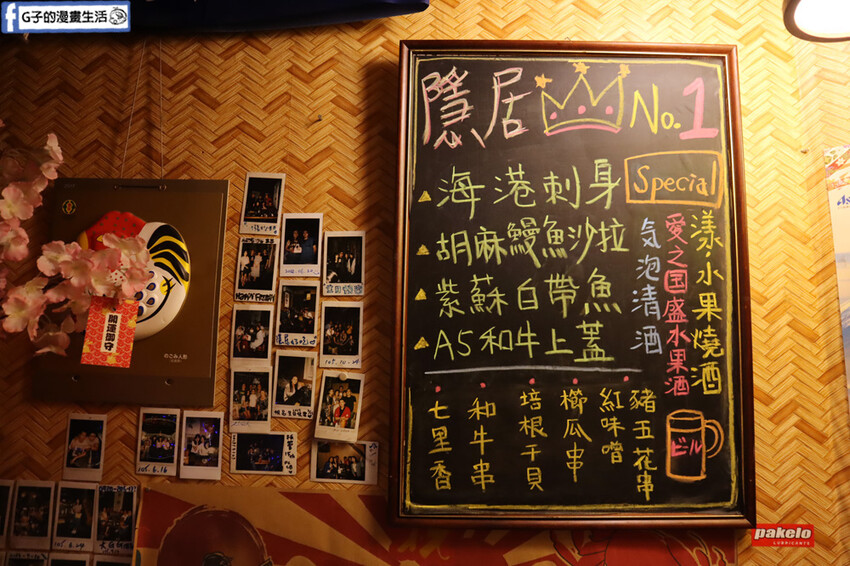 G子的漫畫生活
隱居 No.1
海港刺身
胡麻鰻魚沙拉
紫蘇白帶魚
A5和牛上蓋
Special
漾·水果燒酒
愛之国盛水果酒
気泡清酒
豬五花串
紅味噌
櫛瓜串
培根干貝
和牛串
七里香
ビール
開運御守
pakelo
LUBRICANTS
105.6.16